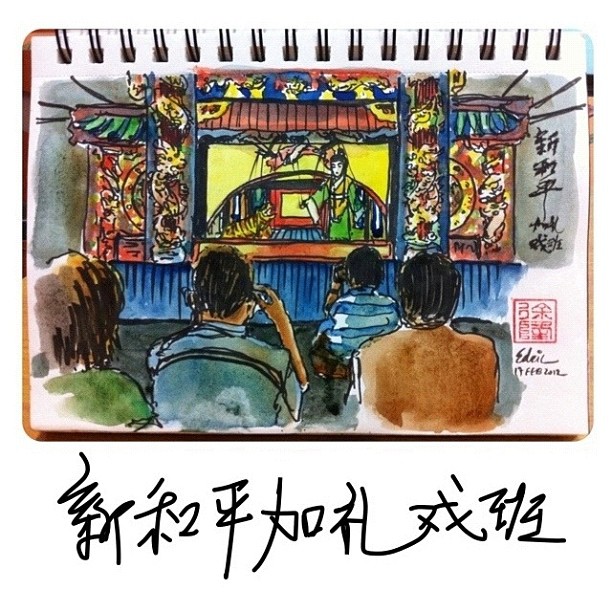 新和平
加礼
戏班
17 FEB 2012
新和平加礼戏班